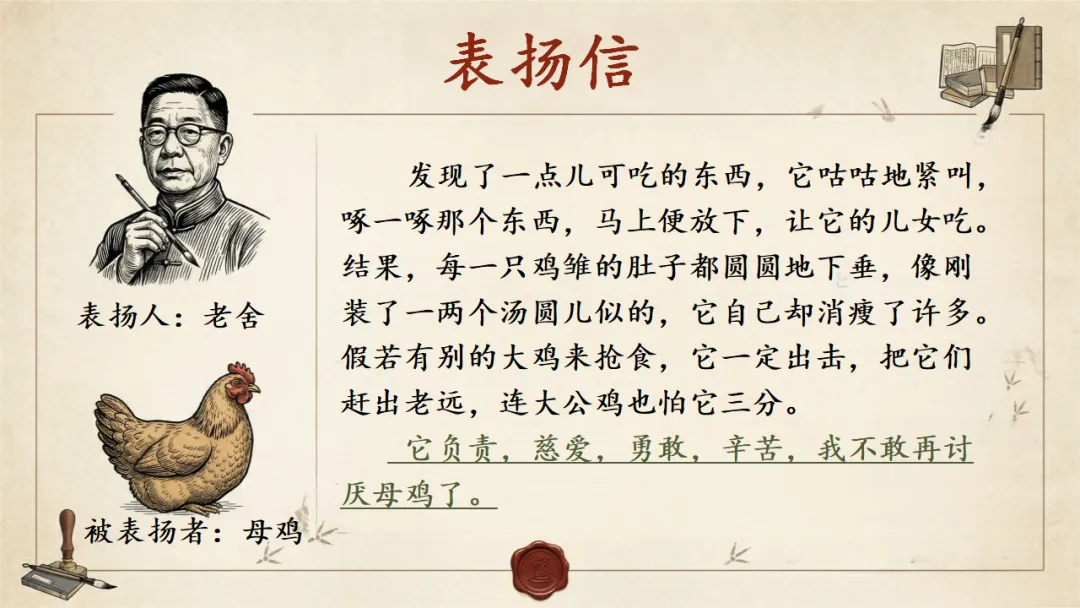 表扬信
表扬人：老舍
被表扬者：母鸡
发现了一点儿可吃的东西，它咕咕地紧叫，
啄一啄那个东西，马上便放下，让它的儿女吃。
结果，每一只鸡雏的肚子都圆圆地下垂，像刚
装了一两个汤圆儿似的，它自己却消瘦了许多。
假若有别的大鸡来抢食，它一定出击，把它们
赶出老远，连大公鸡也怕它三分。
它负责，慈爱，勇敢，辛苦，我不敢再讨
厌母鸡了。